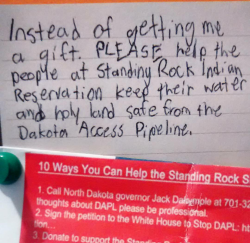 Instead of getting me
a gift. PLEASE help the
people at Standing Rock Indian
Reservation keep their water
and holy land safe from the
Dakota Access Pipeline.
10 Ways You Can Help the Standing Rock S
1. Call North Dakota governor Jack Dalrymple at 701-32
thoughts about DAPL please be professional.
2. Sign the petition to the White House to Stop DAPL:
tion...
3. Donate to support the Standing